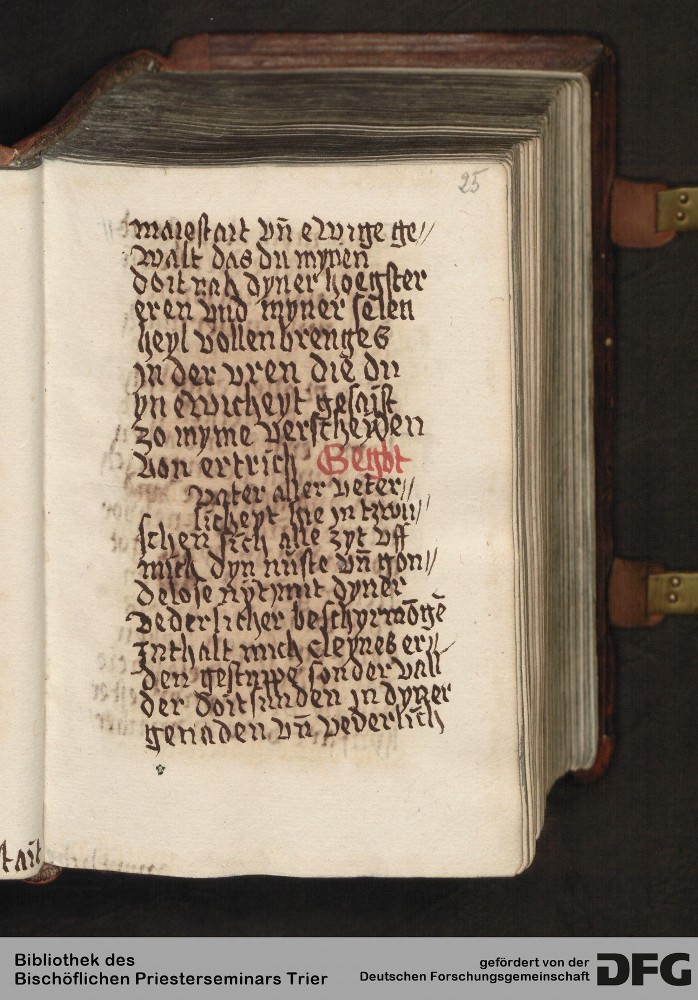 25
maiestait vn̄ ewige ge//
walt das du mynen
doit nah dyner hoegster
eren vnd myner selen
heyl vollenbrenges
jn der vren die du
yn ewicheyt gesaist
zo myme verscheyden
von ertrich Gebet
vater aller veter//
licheyt hie in tzwu//
schen sich alle zyt vff
mich dyn
delose mit dyner
vederlicher beschyrmōgē
Enthalt mich cleynes er//
den gestuppe sonder vall
der doitsunden in dyner
genaden vn̄ vederlich
stait
Bibliothek des
Bischöflichen Priesterseminars Trier
gefördert von der
Deutschen Forschungsgemeinschaft
DFG